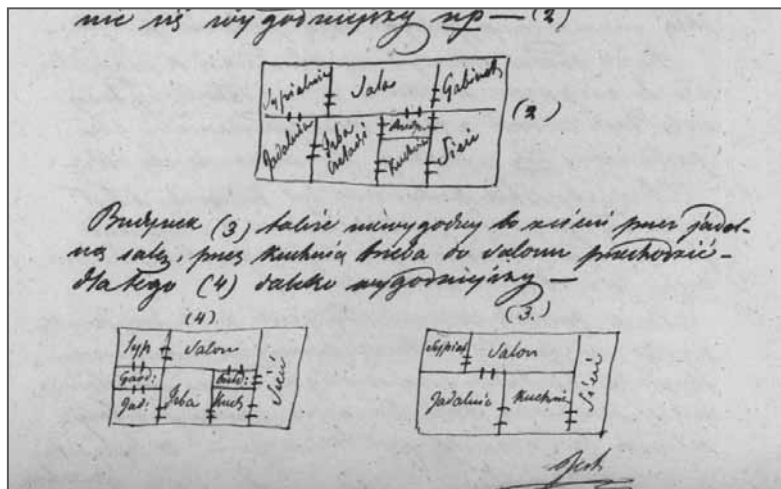 nie iś wygodniejszy np — (2)
Sypialnia Sala Gabinet
(2)
Jadalnia Izba Kuchnia Sień
Budynek (3) także niewygodny bo z sieni przez jadal-
ną salę, przez kuchnią trzeba do salonu przechodzić –
dla tego (4) daleko wygodniejszy —
(4). (3.)
Syp Salon Sień
Gard:
Jad: Izba Kuch
Sypial Salon Sień
Jadalnia Kuchnia